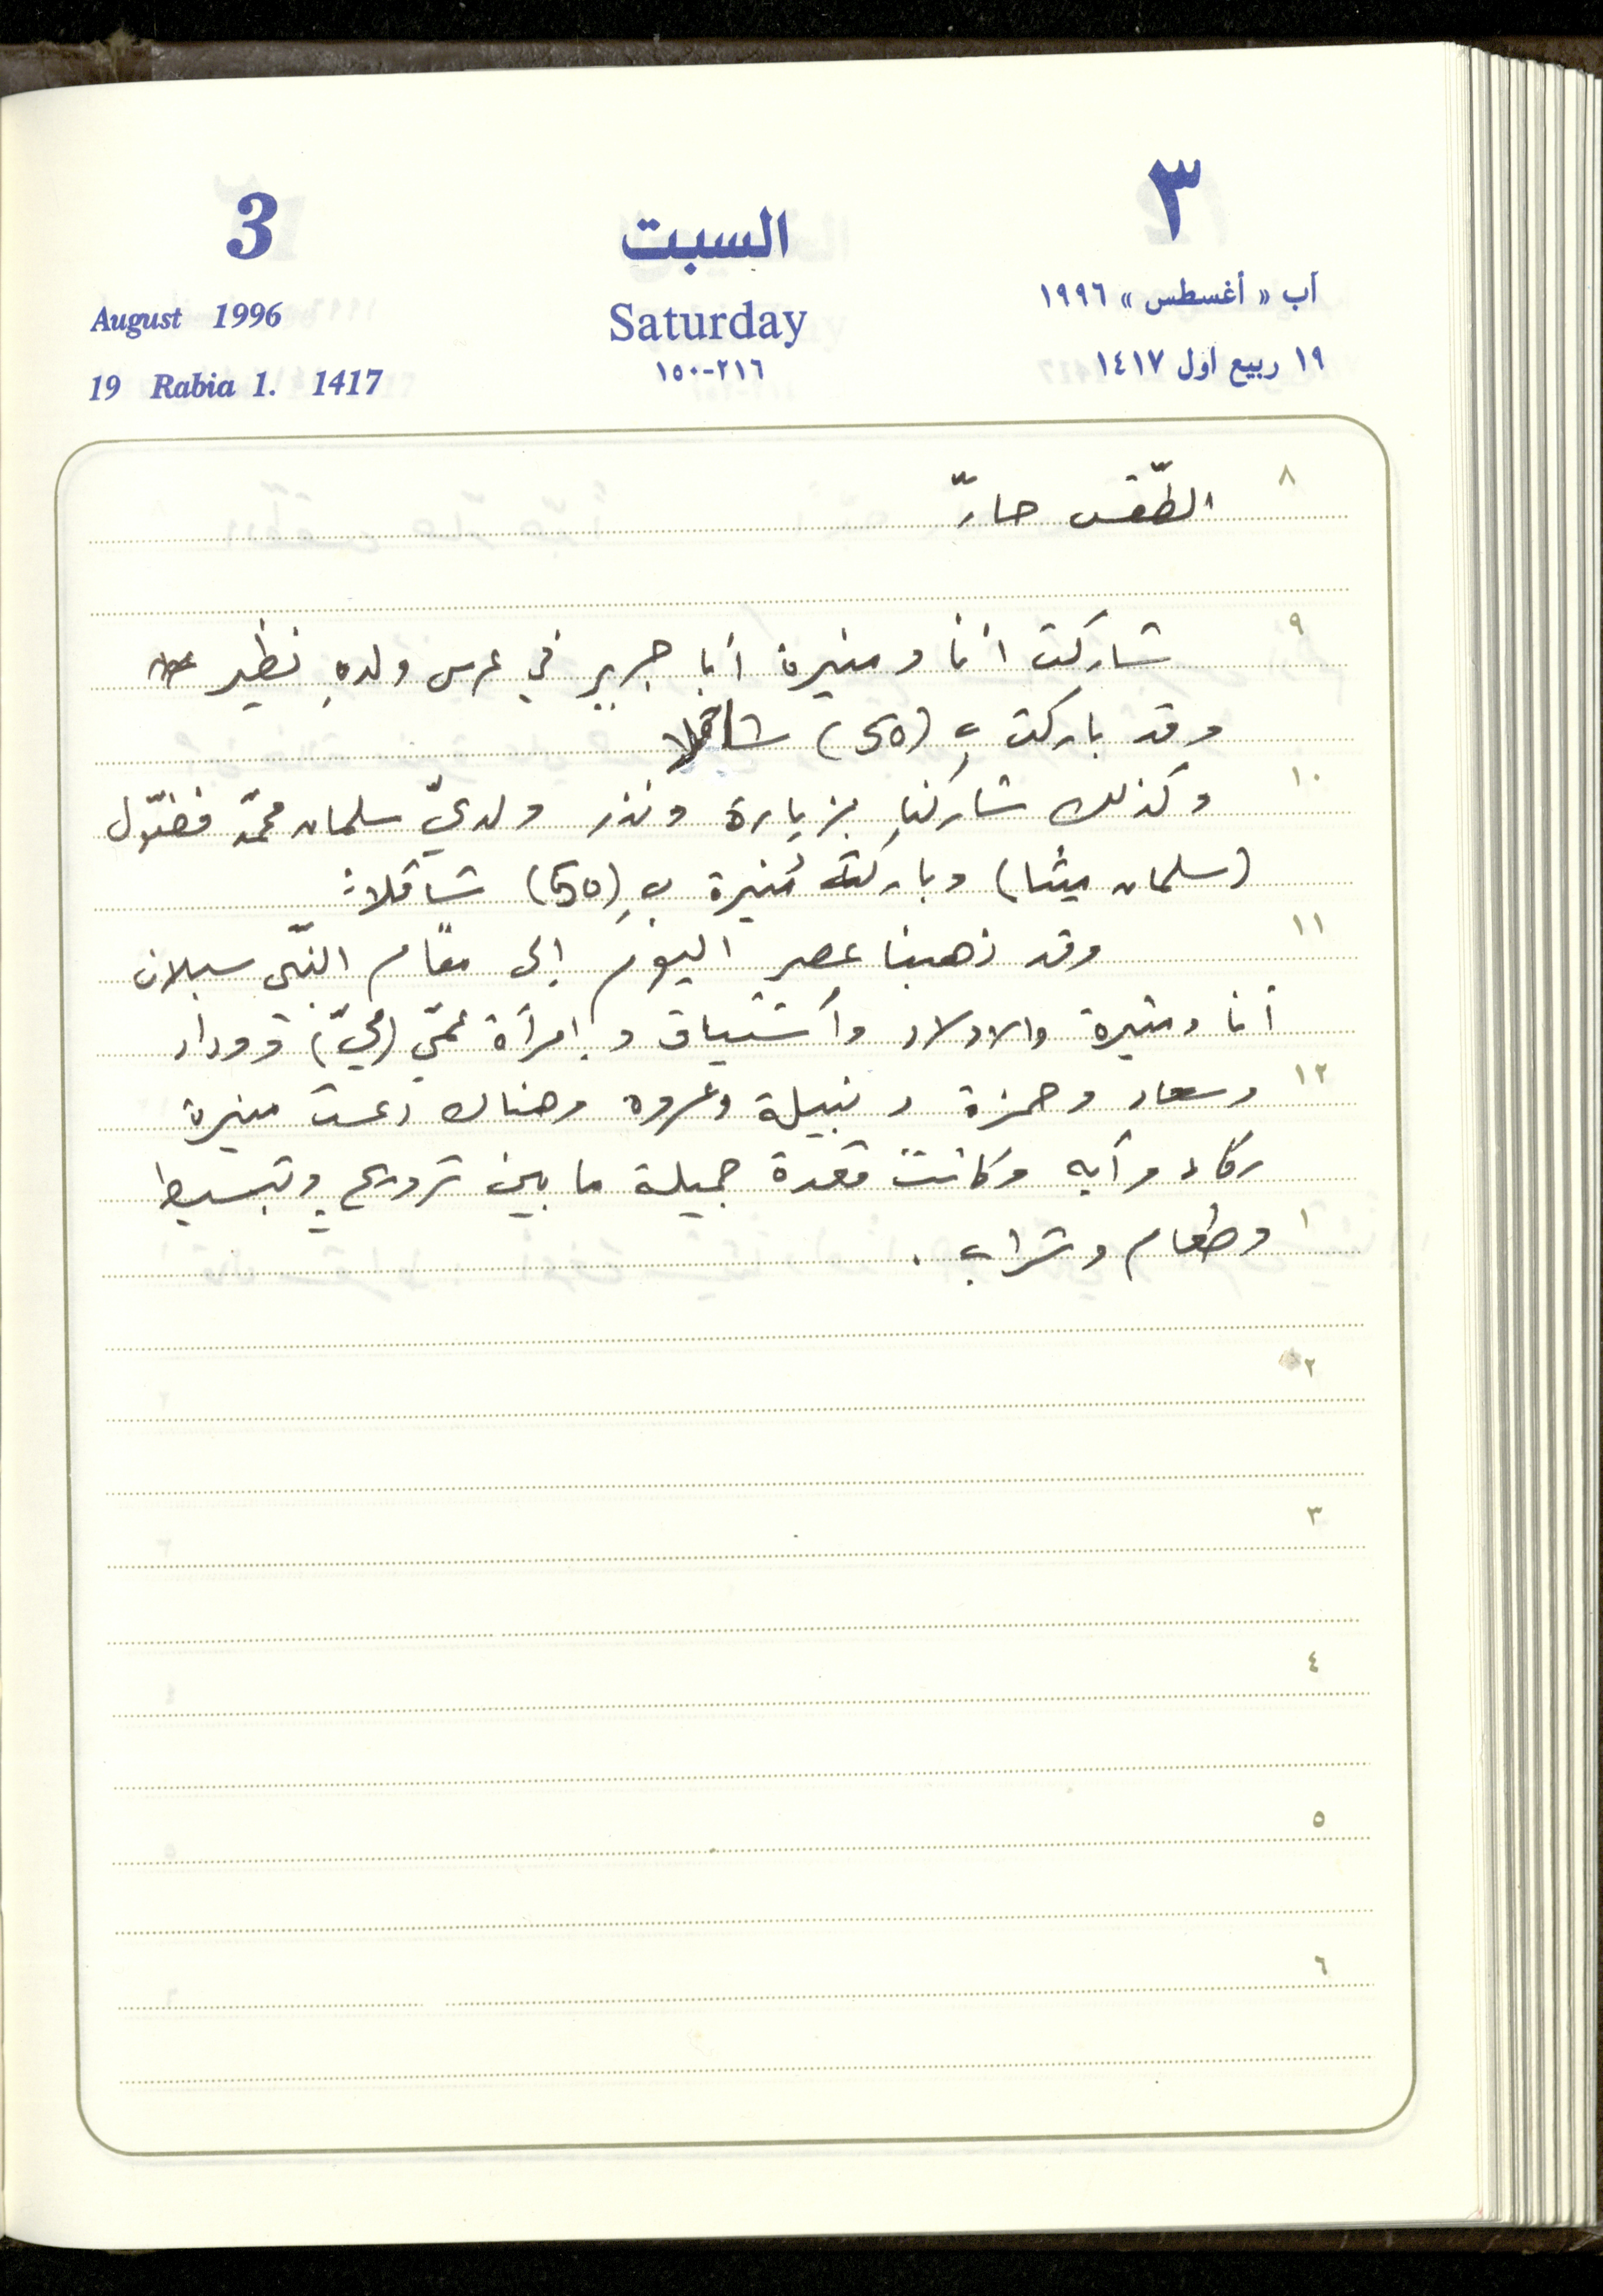 3
السبت
٣
August 1996
Saturday
آب « أغسطس » ١٩٩٦
19 Rabia 1. 1417
٢١٦-١٥٠
١٩ ربيع اول ١٤١٧
٨
الطّقس حارّ
٩
شاركت أنا ومنيرة أبا جرير في عرس ولدهِ نظير
وقد باركت بِ (50) شاقلا
١٠
وكذلك شاركنا بزيارة ونذر ولديّ سلمان محمّد فضّول
(سلمان ميثا) وباركتْ مُنيرة بِ (50) شاقلاً
١١
وقد ذهبنا عصر اليوم إلى مقام النّبي سبلان
أنا ومنيرة والاولاد وأشتياق وإمرأة عمّي ووداد
١٢
وسعاد وحمزة ونبيلة وعروه وهناك دعت منيرة
رگاد وآيه وكانت قعدة جميلة ما بين ترويح وتبسيط
١
وطعام وشراب .
٢
٣
٤
٥
٦